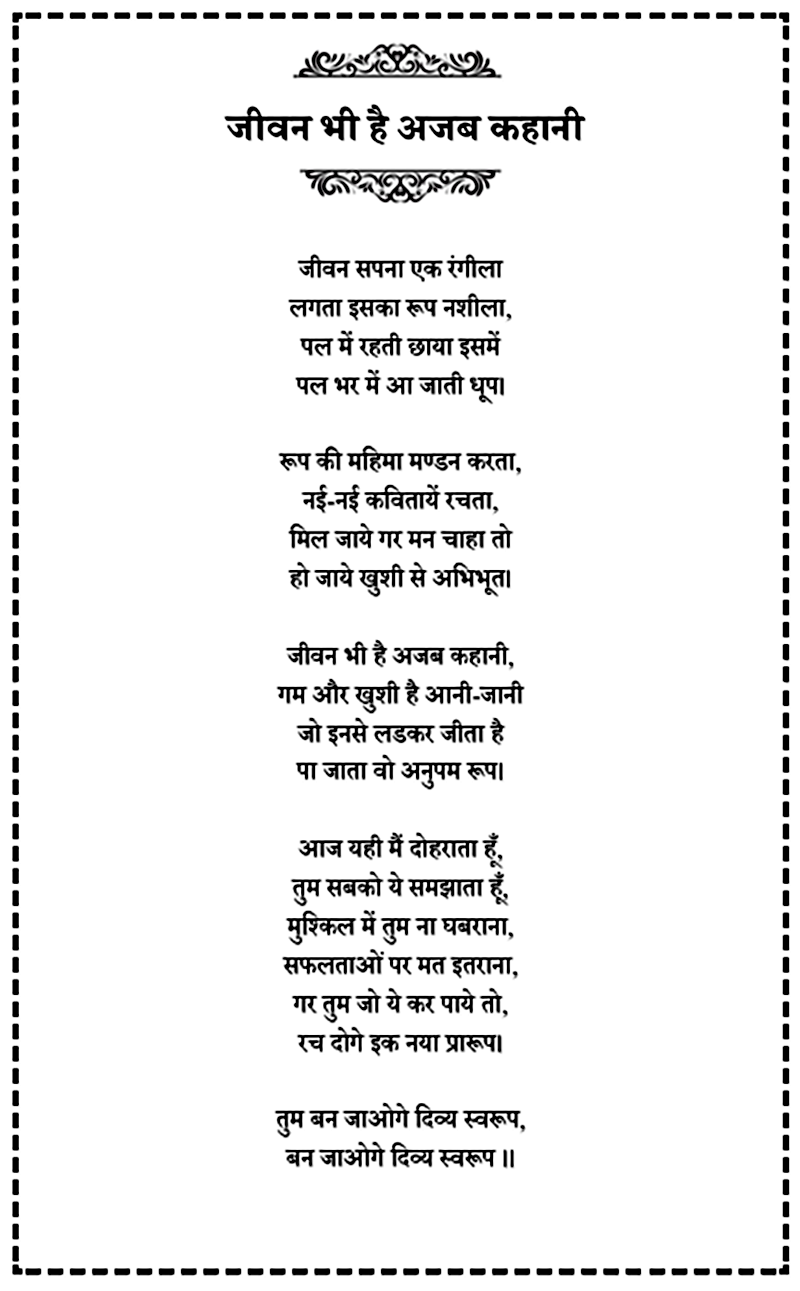 जीवन भी है अजब कहानी
जीवन सपना एक रंगीला
लगता इसका रूप नशीला,
पल में रहती छाया इसमें
पल भर में आ जाती धूप।
रूप की महिमा मण्डन करता,
नई-नई कवितायें रचता,
मिल जाये गर मन चाहा तो
हो जाये खुशी से अभिभूत।
जीवन भी है अजब कहानी,
गम और खुशी है आनी-जानी
जो इनसे लडकर जीता है
पा जाता वो अनुपम रूप।
आज यही मैं दोहराता हूँ,
तुम सबको ये समझाता हूँ,
मुश्किल में तुम ना घबराना,
सफलताओं पर मत इतराना,
गर तुम जो ये कर पाये तो,
रच दोगे इक नया प्रारूप।
तुम बन जाओगे दिव्य स्वरूप,
बन जाओगे दिव्य स्वरूप ॥